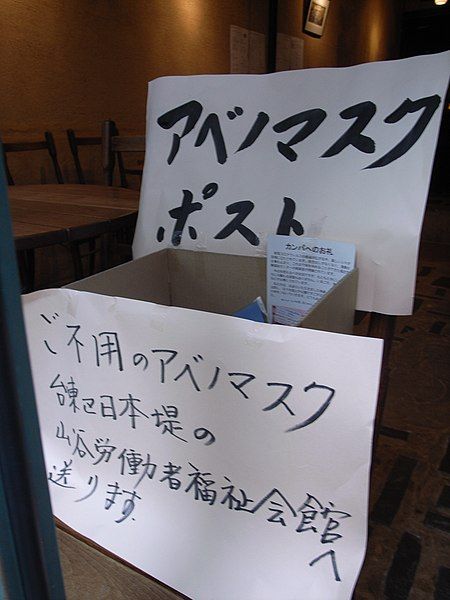 アベノマスク
ポスト
カンパへのお礼
ご不用のアベノマスク
台東区日本堤の
山谷労働者福祉会館へ
送ります